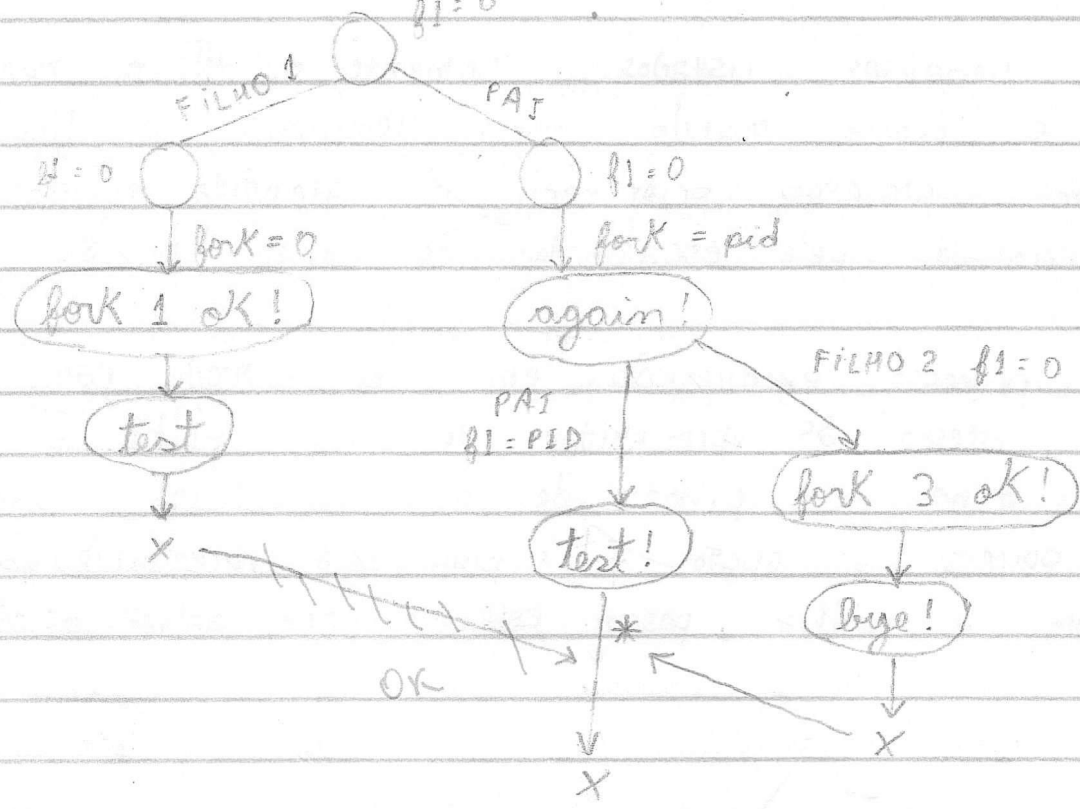 f1=0
FILHO 1
PAI
f1=0
f1=0
fork=0
fork = pid
fork 1 ok!
again!
FILHO 2 f1=0
PAI
f1=PID
test
fork 3 ok!
X
test!
bye!
*
OK
X
X